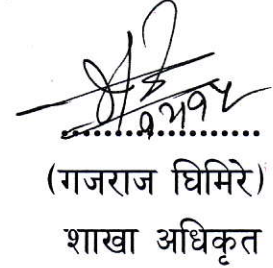 (गजराज घिमिरे)
शाखा अधिकृत